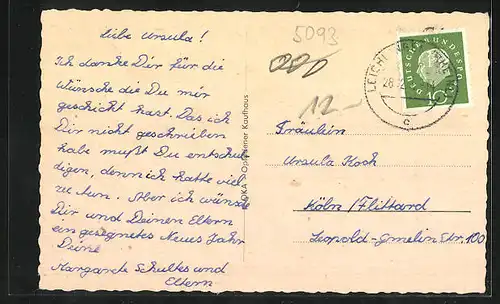 Liebe Ursula!
Ich danke Dir für die
Wünsche die Du mir
geschickt hast. Das ich
Dir nicht geschrieben
habe mußt Du entschul
digen, denn ich hatte viel
zu tun. Aber ich wünsche
Dir und Deinen Eltern
ein gesegnetes Neues Jahr
Deine
Margarete Schultes und
Eltern
Opladener Kaufhaus
5093
12.-
DEUTSCHE BUNDESPOST
10
Fräulein
Ursula Koch
Köln/Flittard
Leopold-Gmelin Str. 100